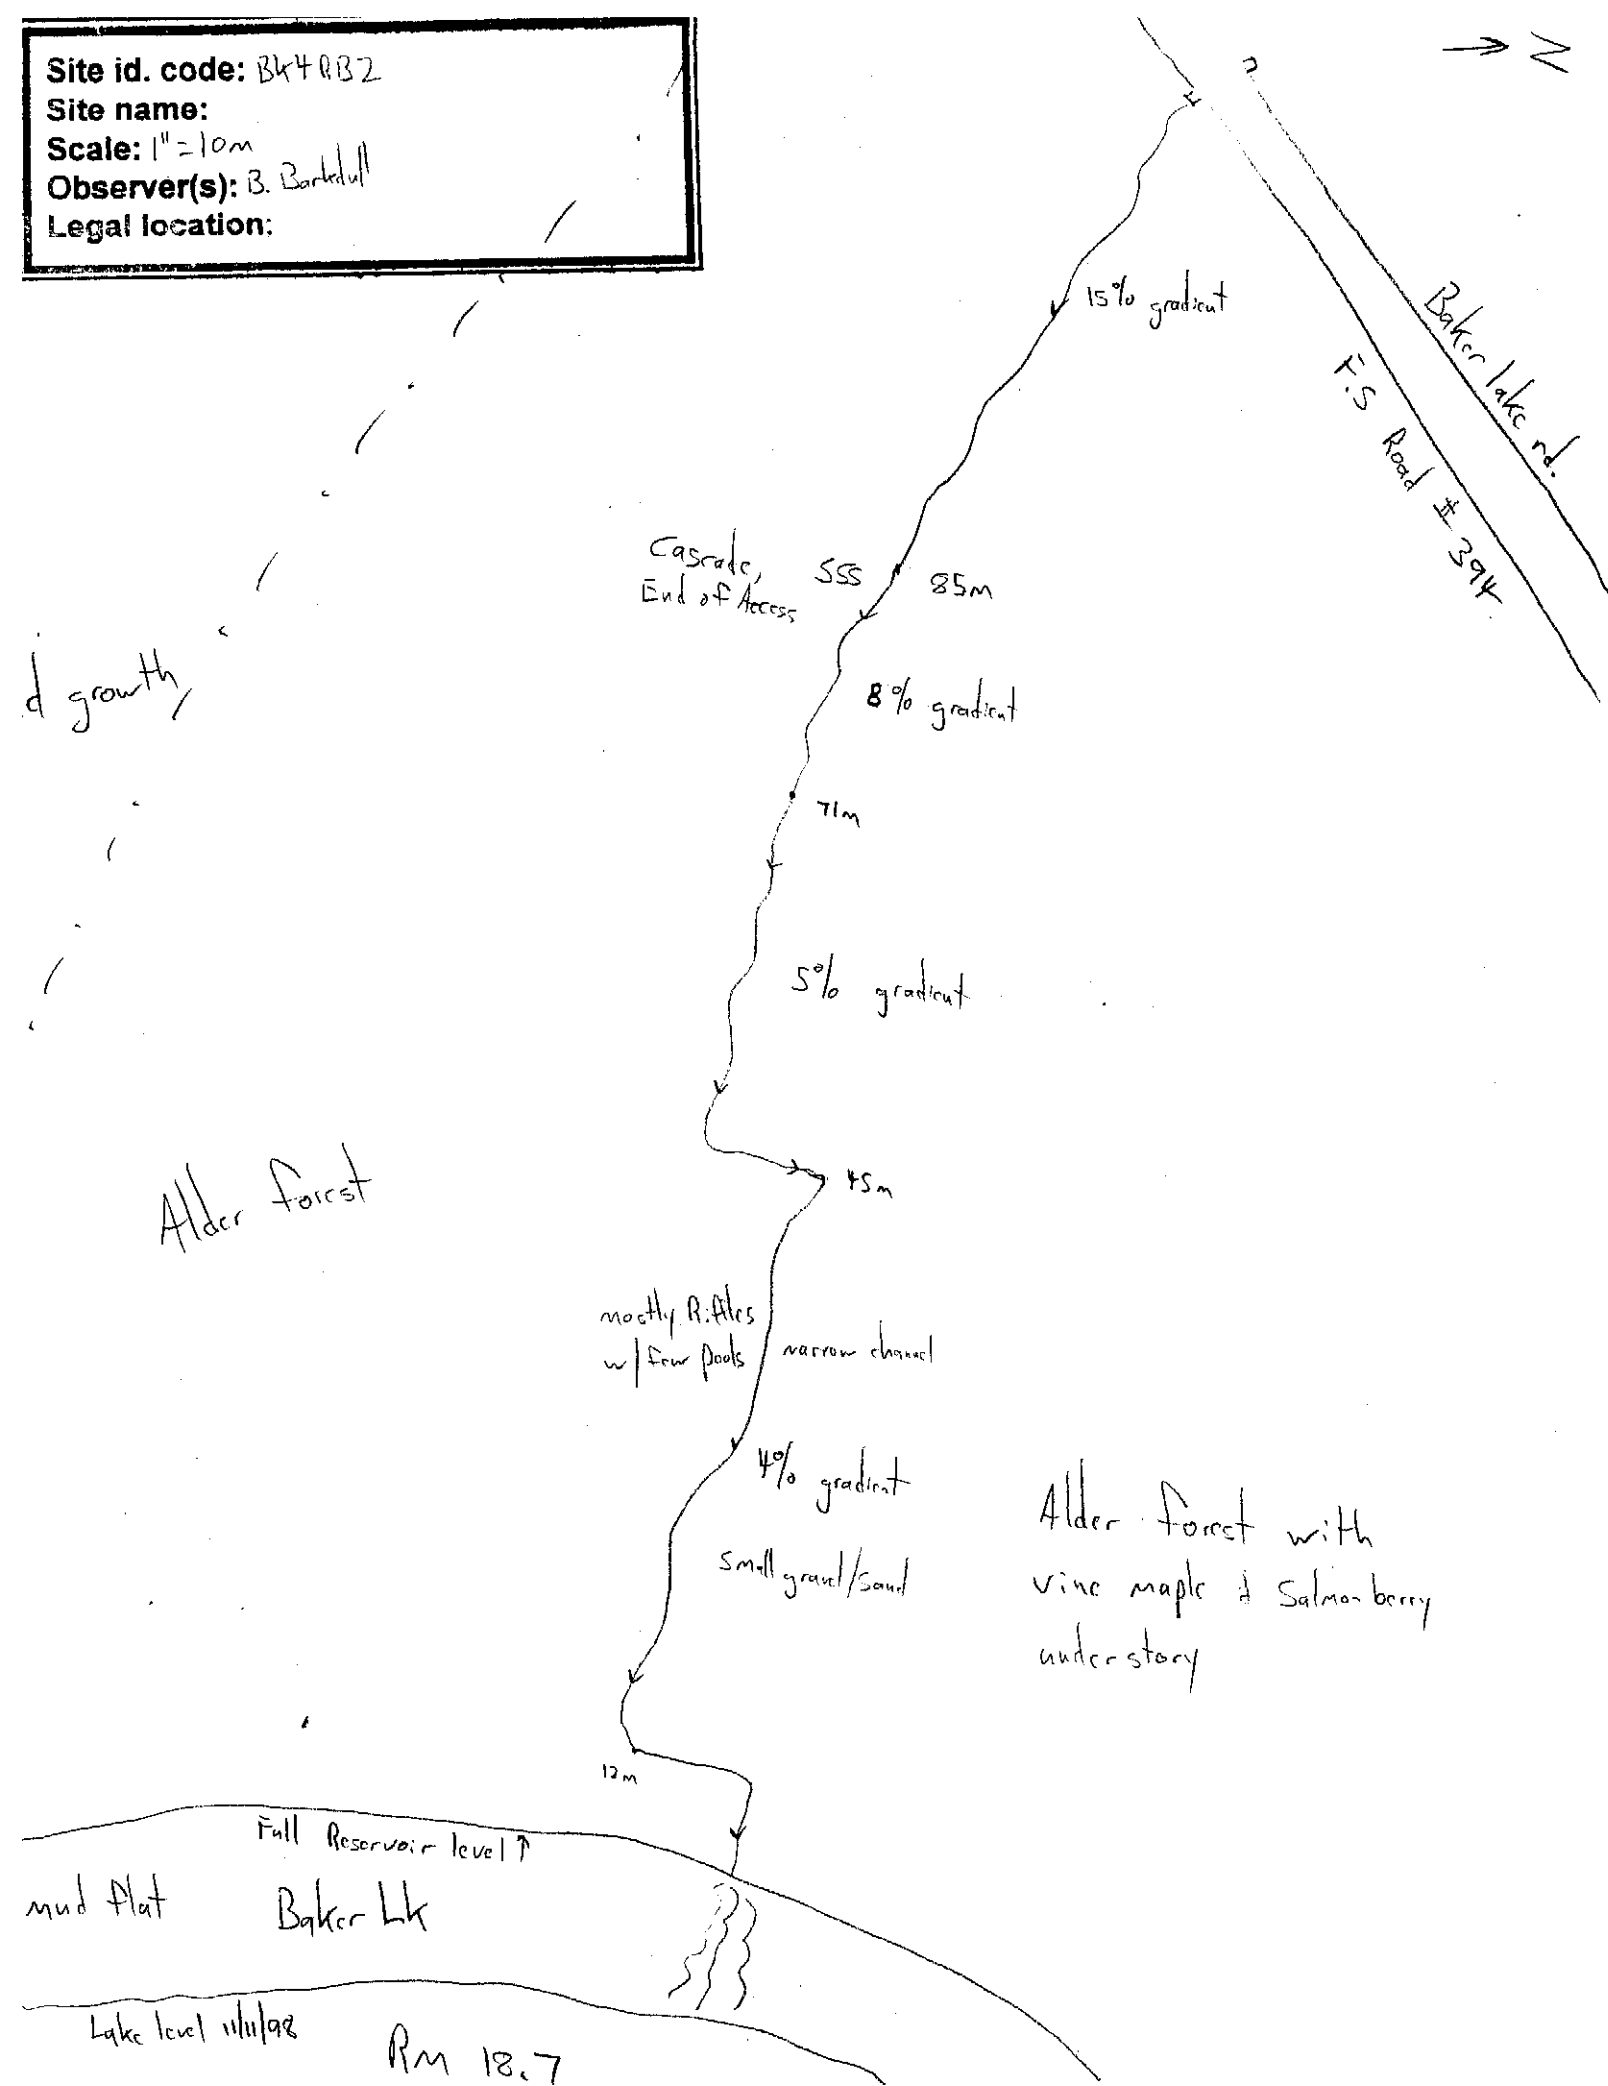 Site id. code: BK4RB2
Site name:
Scale: 1"=10m
Observer(s): B. Barkdull
Legal location:
→ N
15% gradient
Baker lake rd.
F.S Road # 394
Cascade,
End of Access
SSS
85m
d growth,
8% gradient
71m
5% gradient
Alder forest
45m
mostly Riffles
w/ few pools
narrow channel
4% gradient
small gravel/sand
Alder forest with
vine maple & Salmonberry
understory
12m
Full Reservoir level ↑
mud flat
Baker Lk
Lake level 11/11/98
RM 18.7